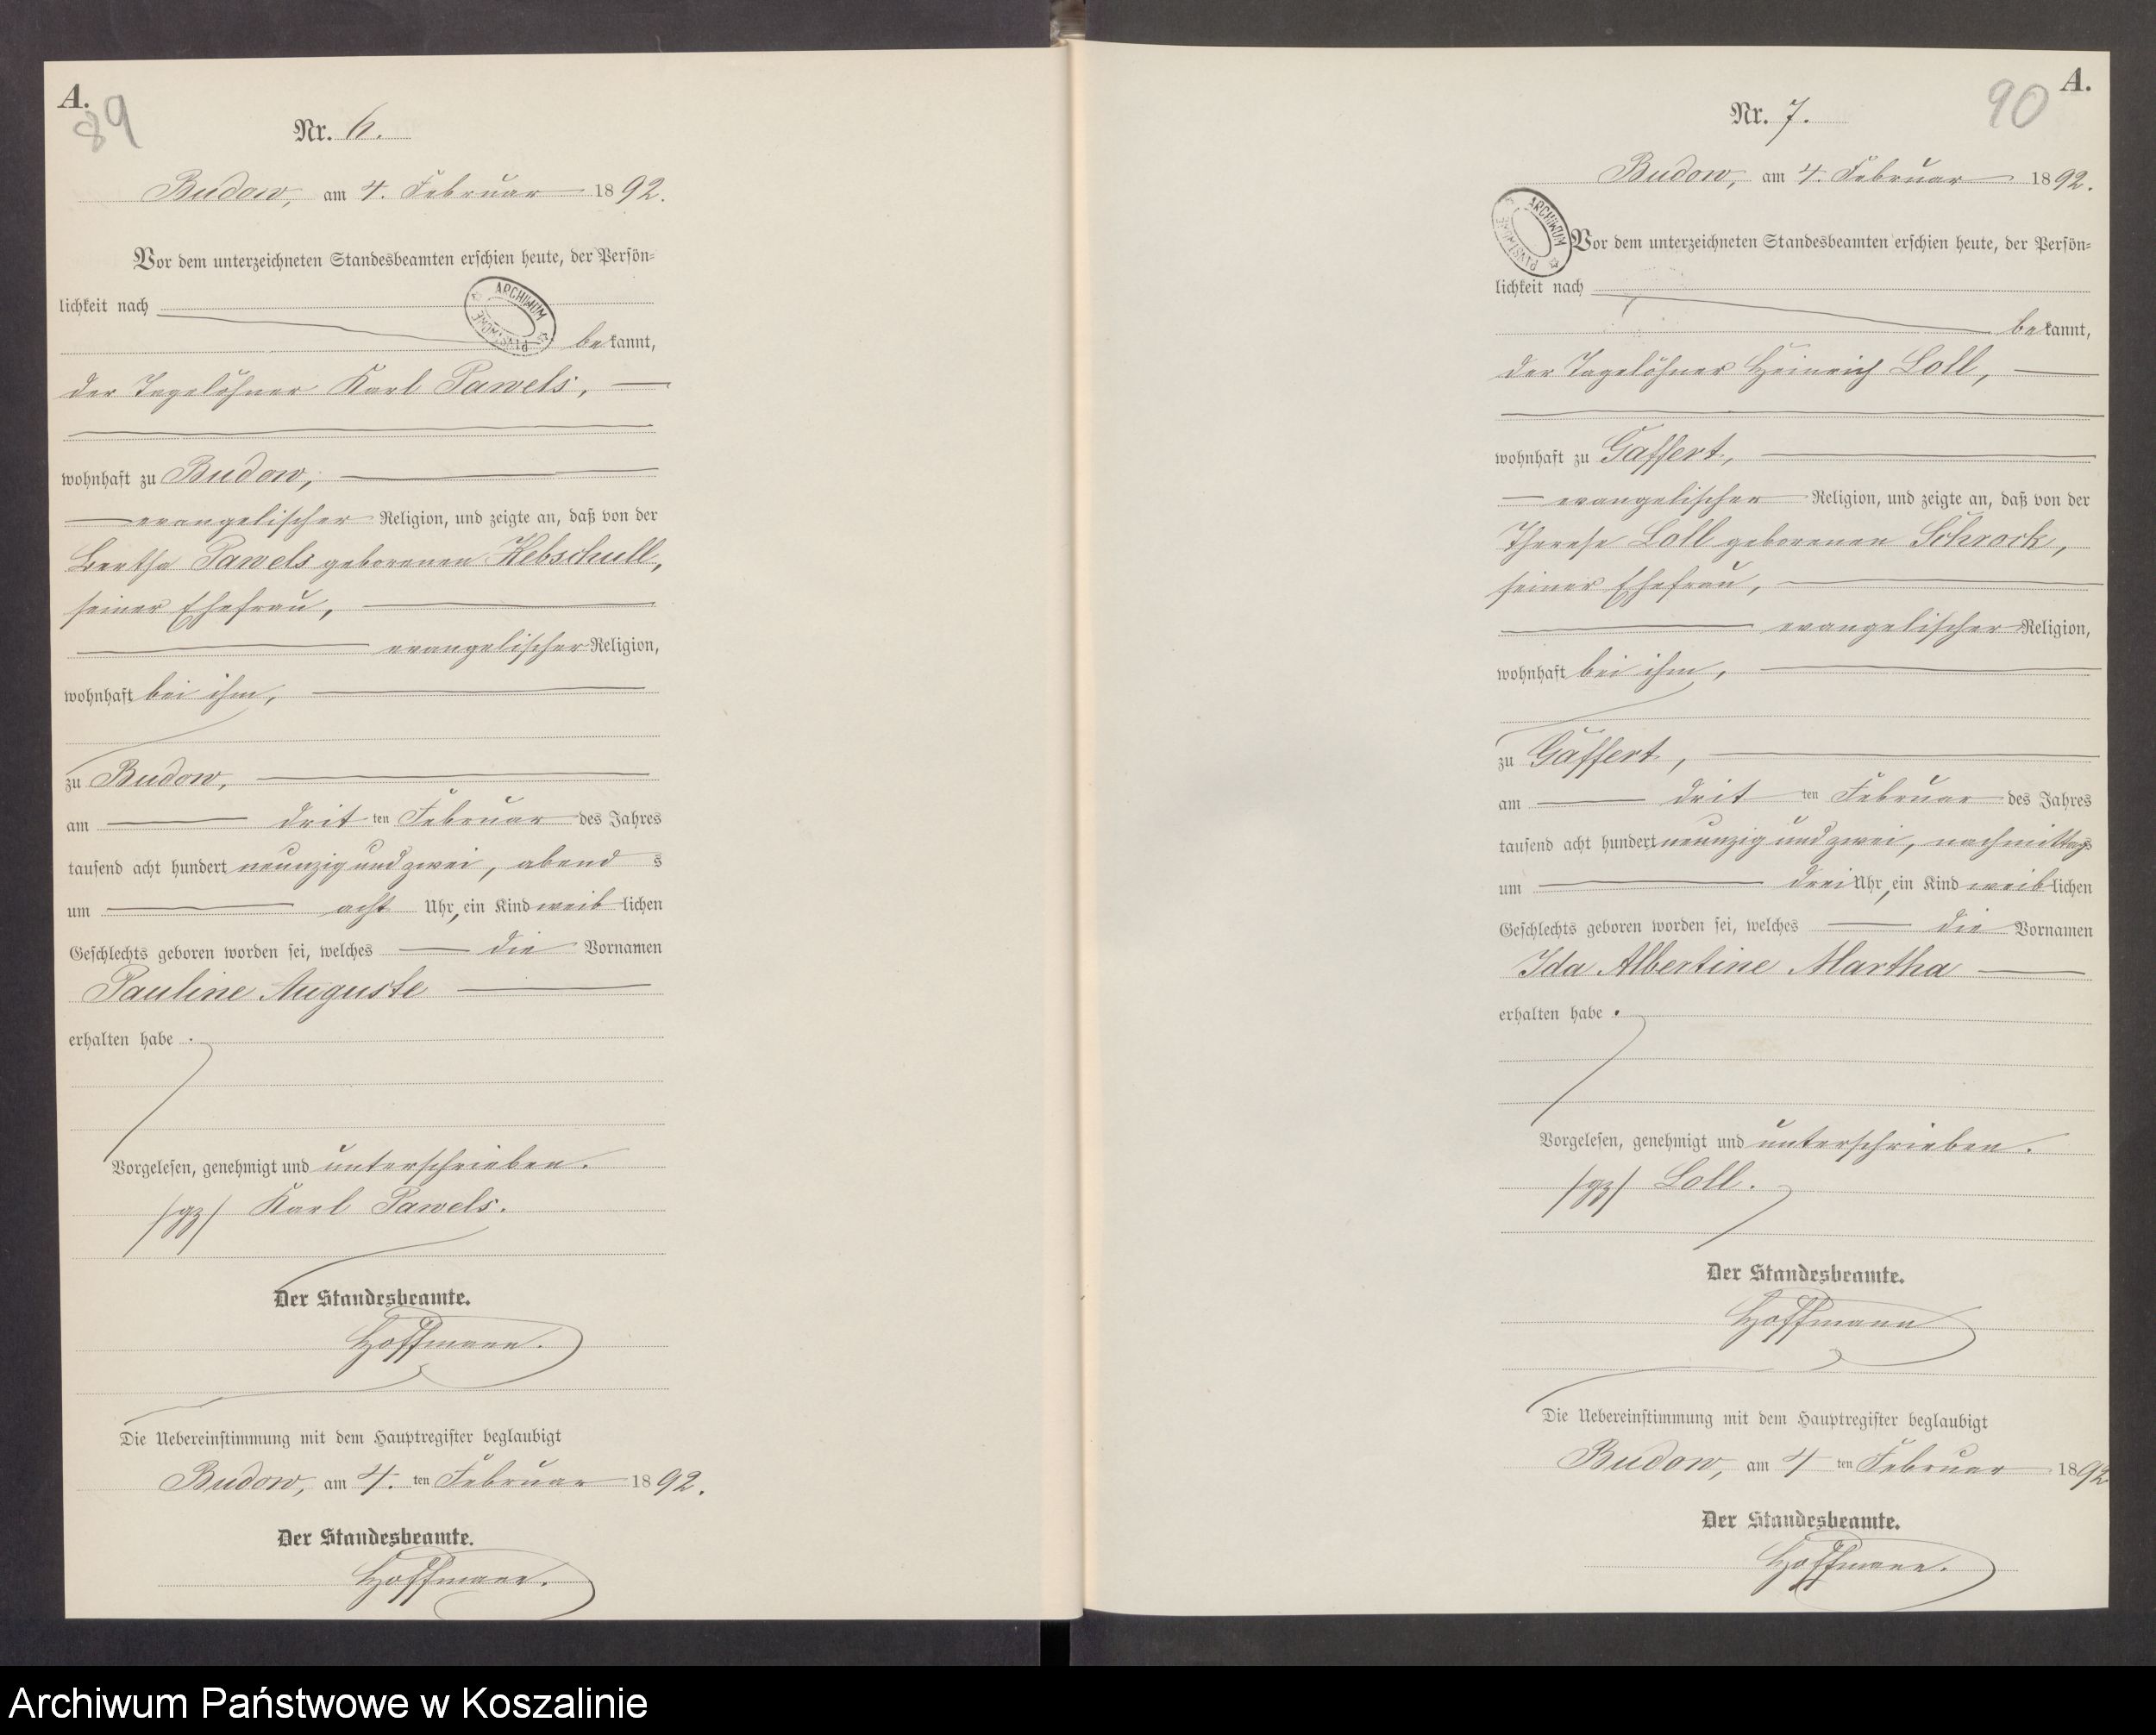 A.
89
Nr. 6.
Budow, am 4. Februar 1892.
Vor dem unterzeichneten Standesbeamten erschien heute, der Persön-
lichkeit nach
ARCHIWUM PAŃSTWOWE
bekannt,
der Tagelöhner Karl Pawels,
wohnhaft zu Budow,
evangelischer Religion, und zeigte an, daß von der
Bertha Pawels geborenen Kebschull,
seiner Ehefrau,
evangelischer Religion,
wohnhaft bei ihm,
zu Budow,
am dritten Februar des Jahres
tausend acht hundert neunzig und zwei, abends
um acht Uhr, ein Kind weiblichen
Geschlechts geboren worden sei, welches die Vornamen
Pauline Auguste
erhalten habe.
Vorgelesen, genehmigt und unterschrieben.
/gz/ Karl Pawels.
Der Standesbeamte.
Hoffmann.
Die Uebereinstimmung mit dem Hauptregister beglaubigt
Budow, am 4. ten Februar 1892.
Der Standesbeamte.
Hoffmann.
A.
90
Nr. 7.
Budow, am 4. Februar 1892.
ARCHIWUM PAŃSTWOWE
Vor dem unterzeichneten Standesbeamten erschien heute, der Persön-
lichkeit nach
bekannt,
der Tagelöhner Heinrich Loll,
wohnhaft zu Gaffert,
evangelischer Religion, und zeigte an, daß von der
Therese Loll geborenen Schrock,
seiner Ehefrau,
evangelischer Religion,
wohnhaft bei ihm,
zu Gaffert,
am dritten Februar des Jahres
tausend acht hundert neunzig und zwei, nachmittags
um drei Uhr, ein Kind weiblichen
Geschlechts geboren worden sei, welches die Vornamen
Ida Albertine Martha
erhalten habe.
Vorgelesen, genehmigt und unterschrieben.
/gz/ Loll.
Der Standesbeamte.
Hoffmann
Die Uebereinstimmung mit dem Hauptregister beglaubigt
Budow, am 4 ten Februar 1892
Der Standesbeamte.
Hoffmann.
Archiwum Państwowe w Koszalinie